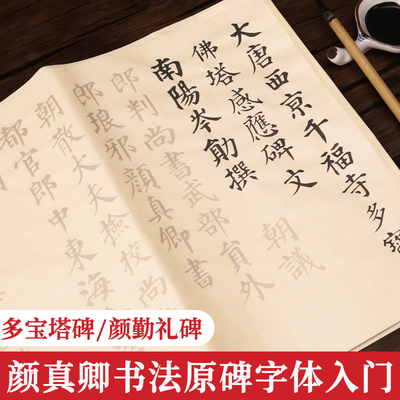 大唐西京千福寺多寶
佛塔感應碑文
南陽岑勛撰 朝議
郎判尚書武部員外
郎琅邪顏真卿書
朝散大夫檢校尚
都官郎中東海
多宝塔碑/颜勤礼碑
颜真卿书法原碑字体入门